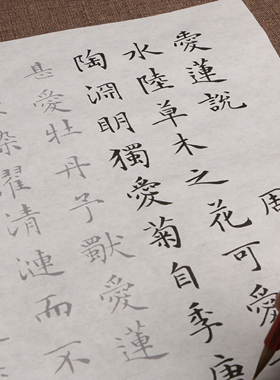 愛蓮說
周
水陸草木之花可愛
陶淵明獨愛菊自季唐
甚愛牡丹予獸愛蓮
染濯清漣而不